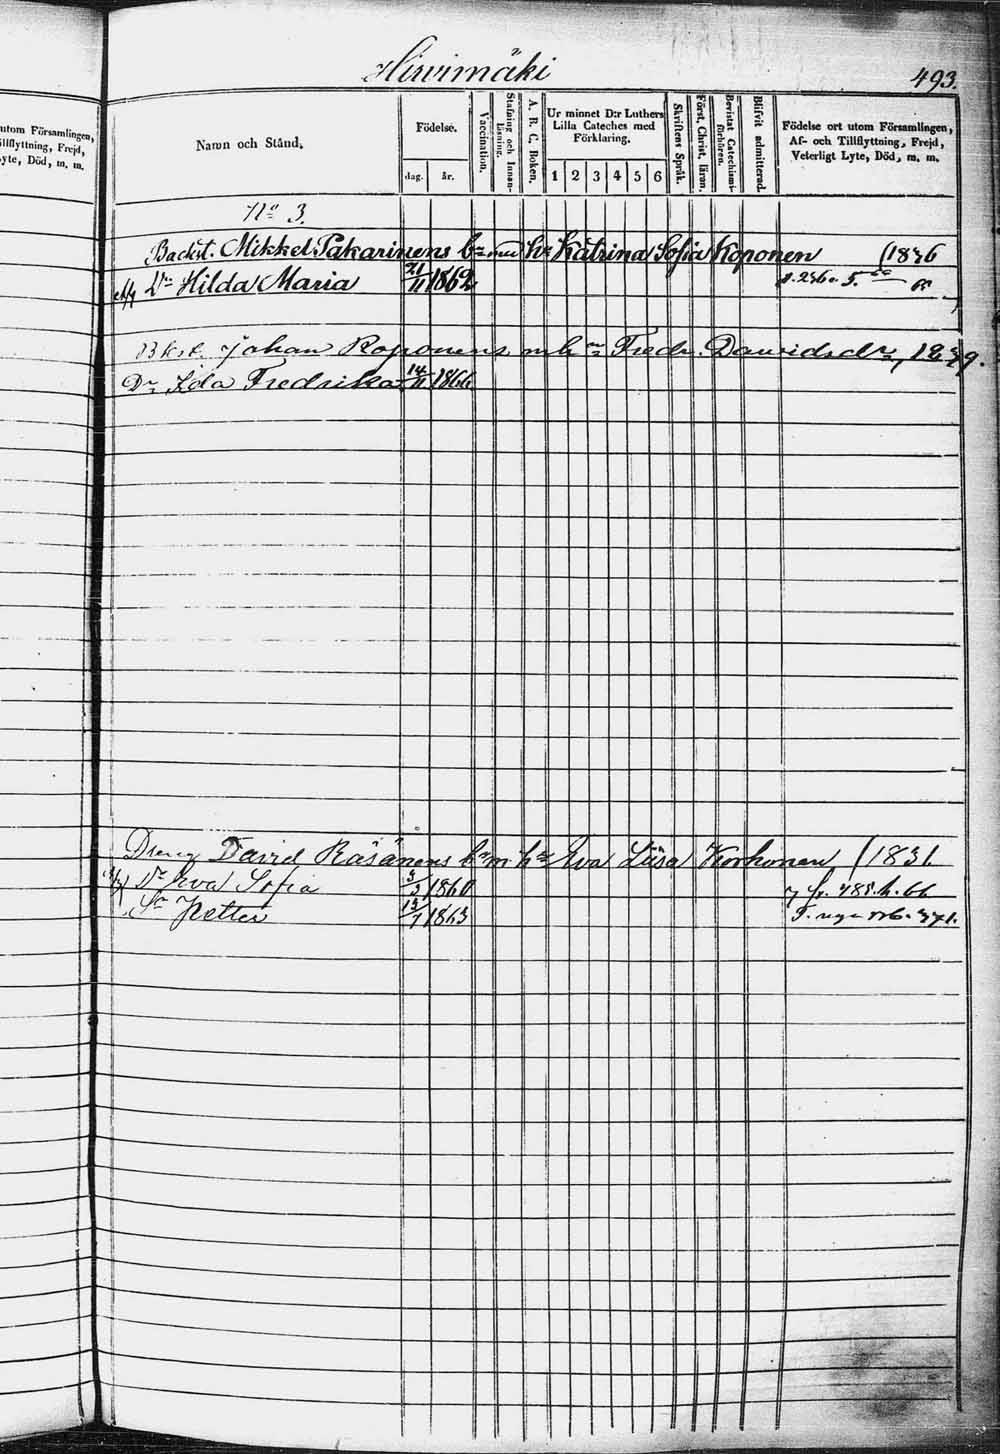 utom Församlingen,
illflyttning, Frejd,
yte, Död, m. m.
Hirvimäki
493.
Namn och Stånd.
Födelse.
dag.
år.
Vaccination.
Stafning och Innan-
läsning.
A. B. C. Boken.
Ur minnet D:r Luthers
Lilla Cateches med
Förklaring.
1 2 3 4 5 6
Skriftens Språk.
Först. Christ. läran.
Bevistat Catechismi-
förhören.
Blifvit admitterad.
Födelse ort utom Församlingen,
Af- och Tillflyttning, Frejd,
Veterligt Lyte, Död, m. m.
No 3.
Backst. Mikkel Pakarinens bn med hu Katrina Sofia Koponen (1836
Dr Hilda Maria 21/11 1862
Bkst. Johan Koponens m h Fredr. Davidsdr, 1839.
Dr Ida Fredrika 14/11 1866
Dreng David Räsänens bn m hu Eva Liisa Korhonen (1831
Dr Eva Sofia 3/3 1860
Sn Petter 13/7 1863